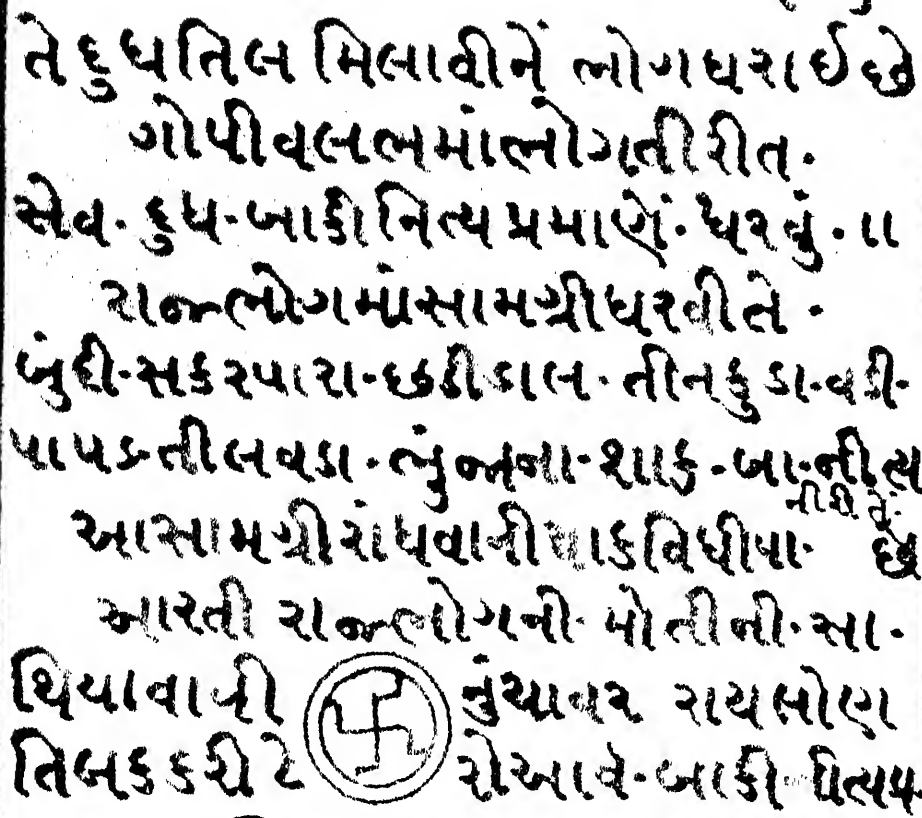 તે દુધ તિલ મિલાવીનેં ભોગ ધરાઈ છે
ગોપીવલભમાં ભોગની રીત.
સેવ. દુધ. બાકી નિત્ય પ્રમાણેં. ધરવું. ॥
રાજભોગમાં સામગ્રી ધરવી તે.
બુંદી. સકરપારા. છડીદાલ. તીનકુડા. વડી.
પાપડ. તીલવડા. ભુંજાના. શાક. બા. નીત્ય
નીરીતેં.
આ સામગ્રી રાંધવાની પાકવિધીમા. છે
આરતી રાજભોગની. મોતીની. સા.
થિયાવાલી નુંચાવર રાયલોણ
તિલક કરી ટે રો આવે. બાકી નિત્યપ્ર.